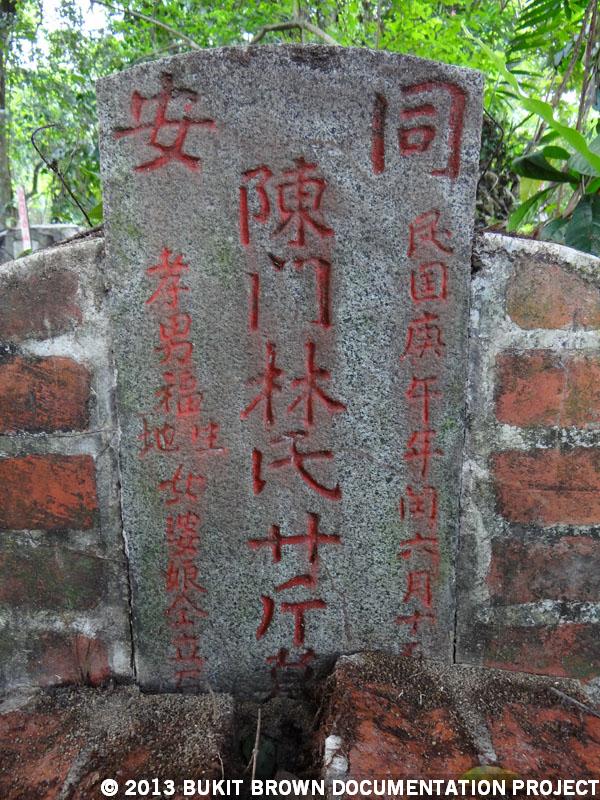 同安
民国庚午年闰六月十
陳門林氏廿斤墓
孝男福生地
女婆娘仝立石
© 2013 BUKIT BROWN DOCUMENTATION PROJECT